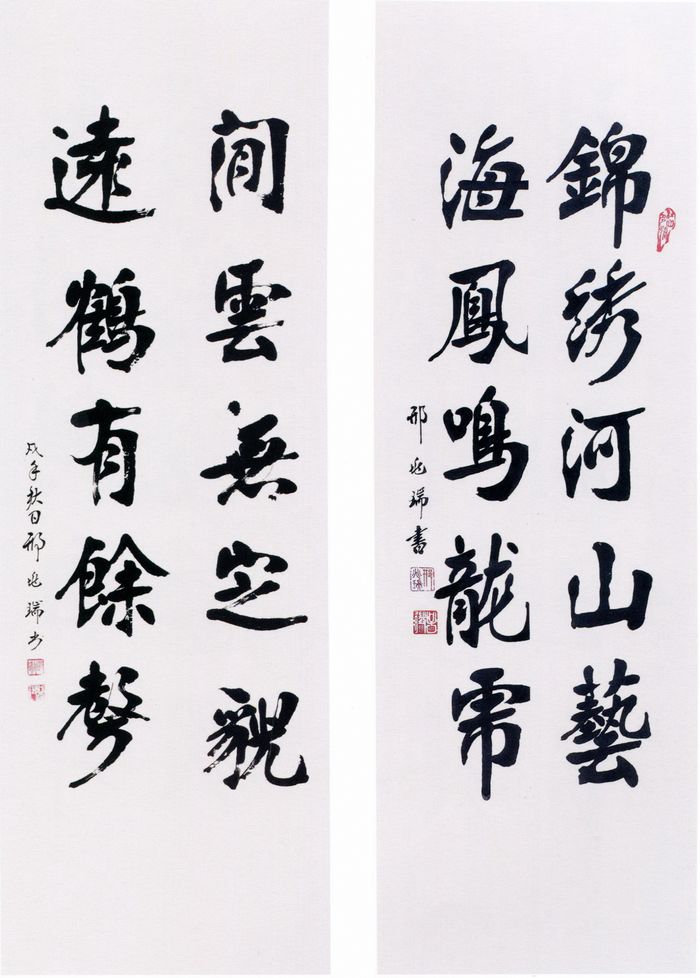 錦綉河山藝
海鳳鳴龍
邢兆瑞書
閒雲無定貌
遠鶴有餘聲
戌年秋日邢兆瑞书